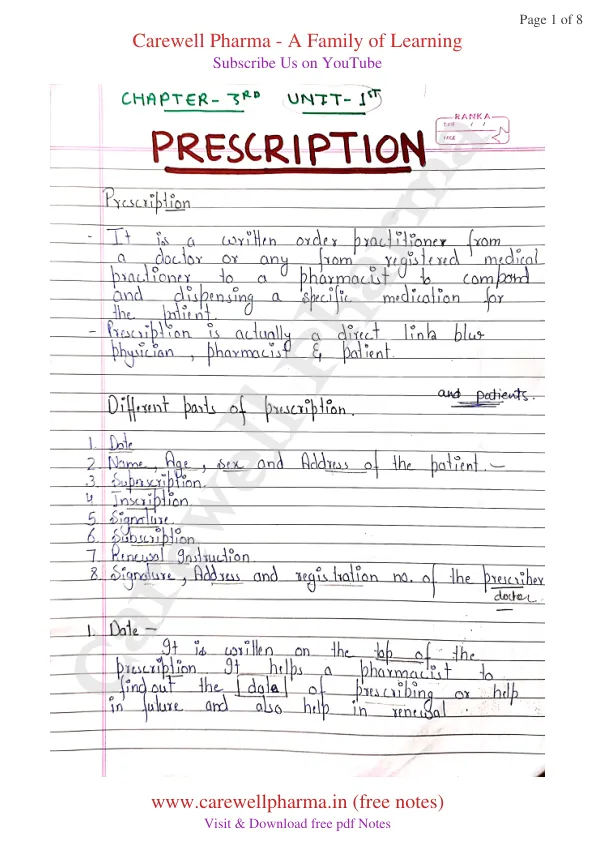 Page 1 of 8
Carewell Pharma - A Family of Learning
Subscribe Us on YouTube
CHAPTER- 3RD UNIT- 1ST
RANKA
DATE / /
PAGE
PRESCRIPTION
Prescription
- It is a written order practitioner from
a doctor or any from registered medical
practioner to a pharmacist to compond
and dispensing a specific medication for
the patient.
- Prescription is actually a direct link b/w
physician, pharmacist & patient.
and patients.
Different parts of prescription.
1. Date
2. Name, Age, sex and Address of the patient. -
3. Superscription.
4. Inscription.
5. Signature.
6. Subscription
7. Renewal Instruction.
8. Signature, Address and registration no. of the prescriber
doctor
1. Date -
It is written on the top of the
prescription. It helps a pharmacist to
find out the date of prescribing or help
in future and also help in renewal.
Carewell Pharma
www.carewellpharma.in (free notes)
Visit & Download free pdf Notes